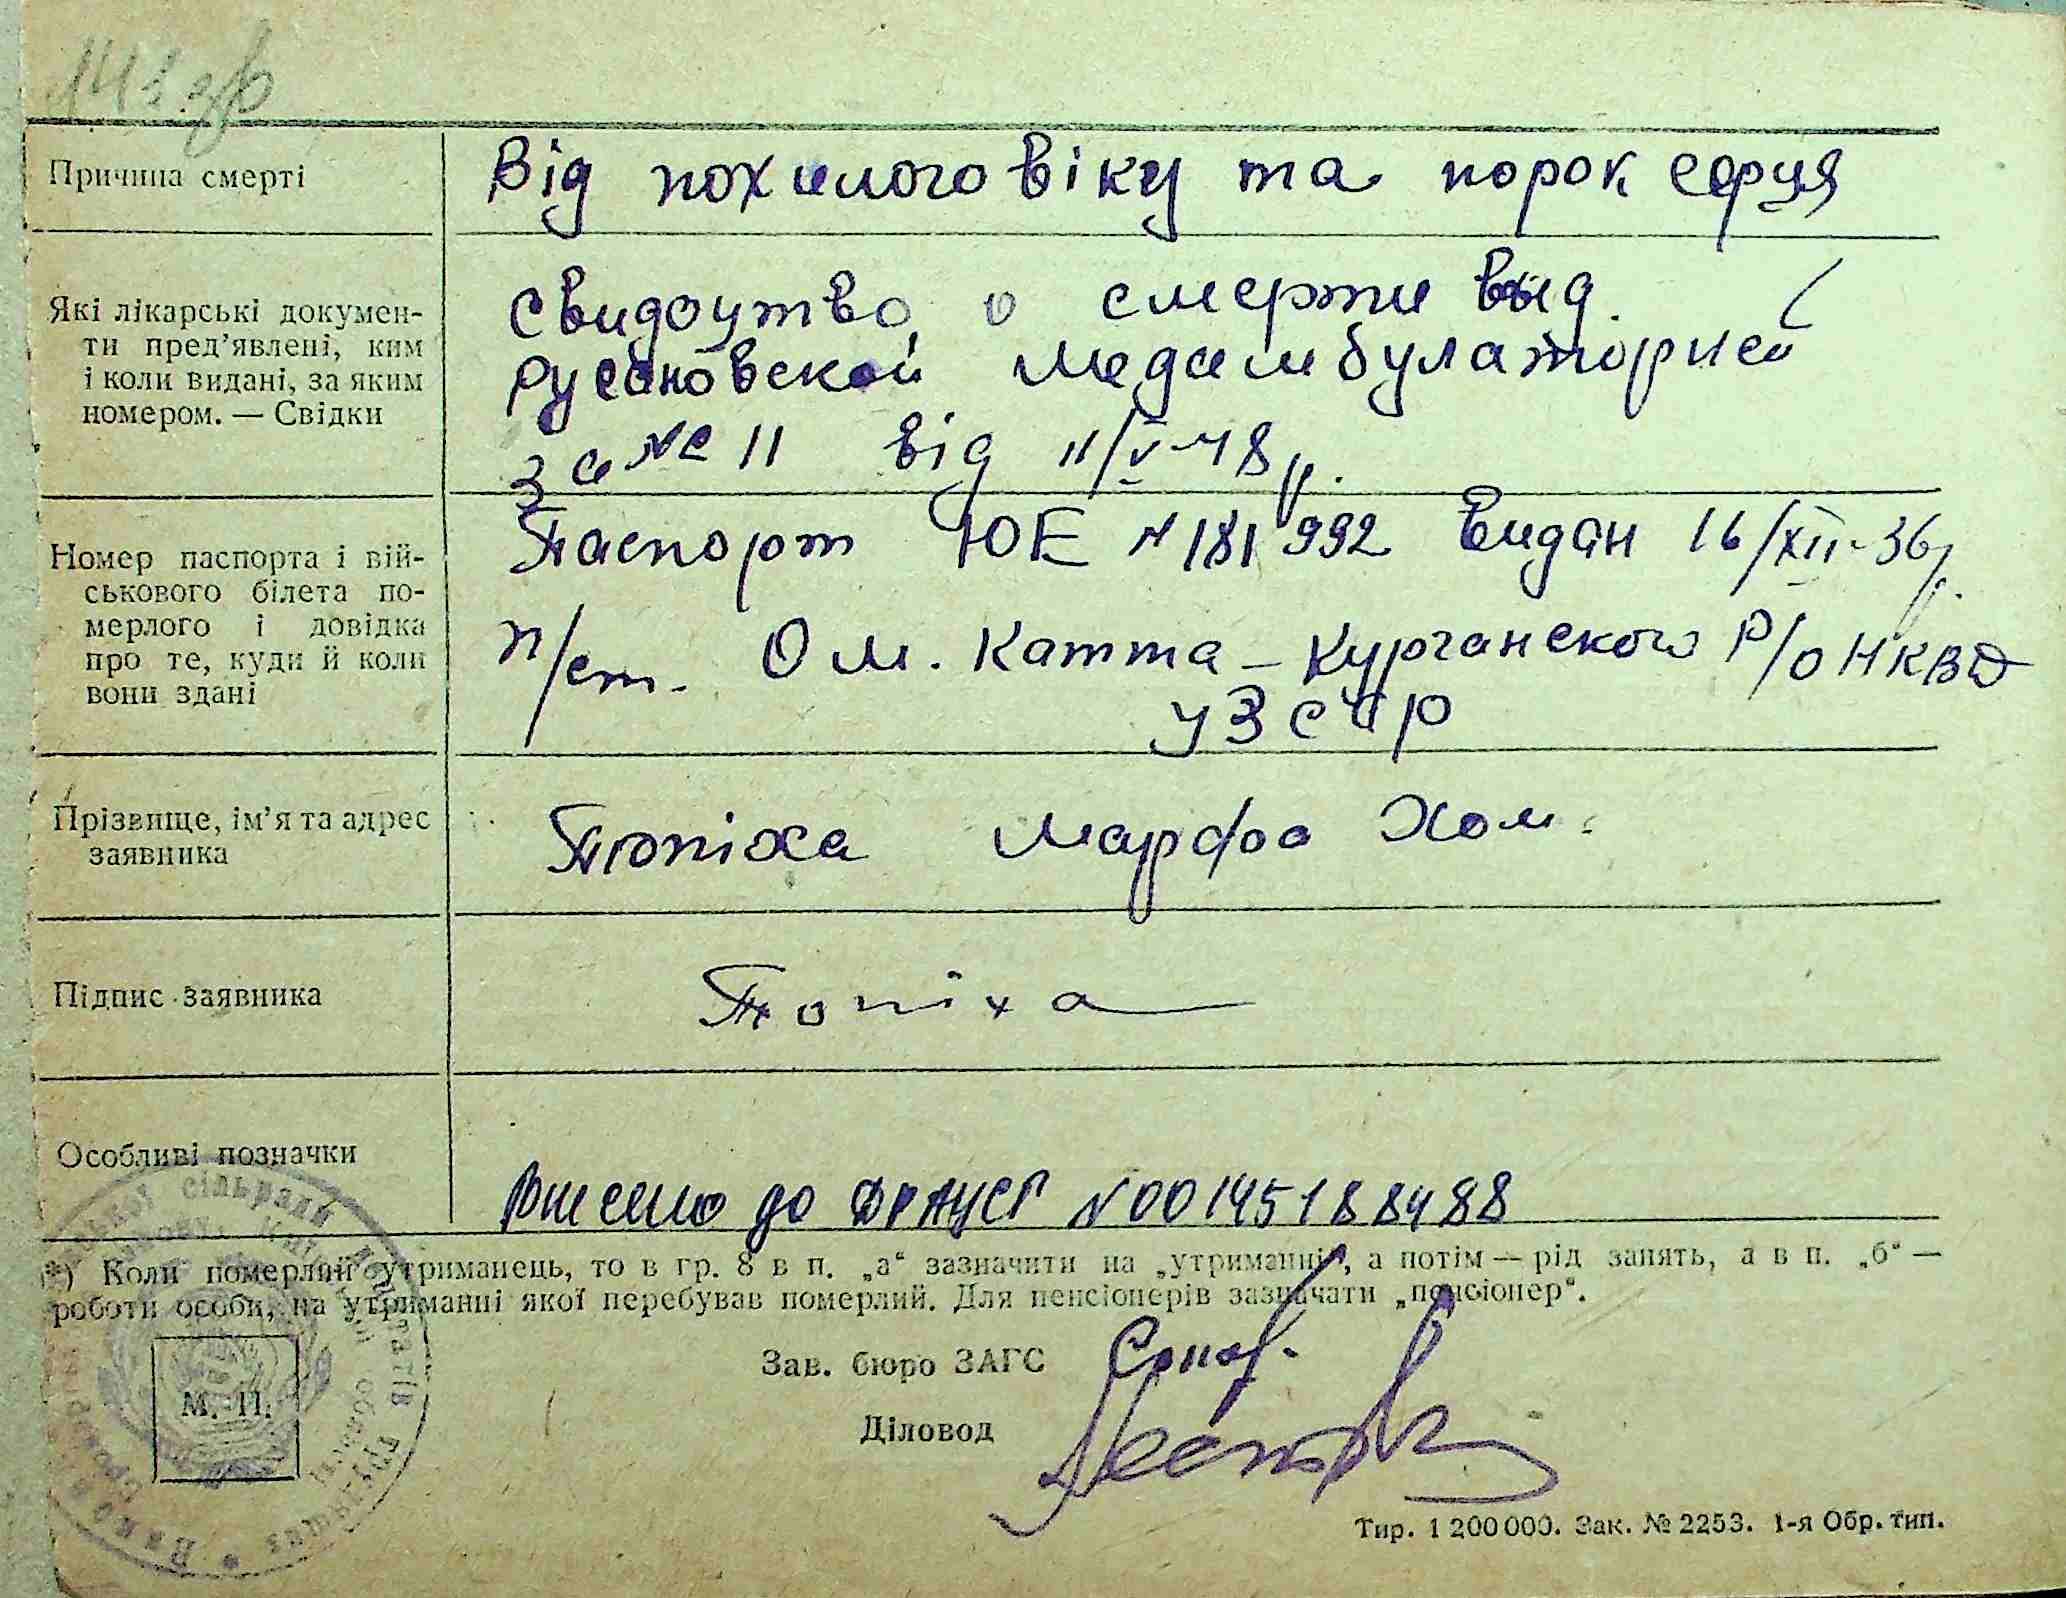 Причина смерті
Від похилого віку та порок серця
Які лікарські докумен-
ти пред’явлені, ким
і коли видані, за яким
номером. — Свідки
Свидоутво о смерти выд.
Русановской медамбулаторией
за № 11 від 11/V-48 р.
Номер паспорта і вій-
ськового білета по-
мерлого і довідка
про те, куди й коли
вони здані
Паспорт ЮЕ № 181992 видан 16/XII-36р.
п/ст. Ом. Катта-Курганского Р/О НКВД
УЗССР
Прізвище, ім’я та адрес
заявника
Топіха Марфа Хом.
Підпис заявника
Топіха
Особливі позначки
Внесено до ДРАЦСГ №00145188488
*) Коли померлий утриманець, то в гр. 8 в п. „а“ зазначити на „утриманні“, а потім — рід занять, а в п. „б“ —
роботи особи, на утриманні якої перебував померлий. Для пенсіонерів зазначати „пенсіонер“.
Зав. бюро ЗАГС
Діловод
М. П.
Тир. 1 200 000. Зак. № 2253. 1-я Обр. тип.